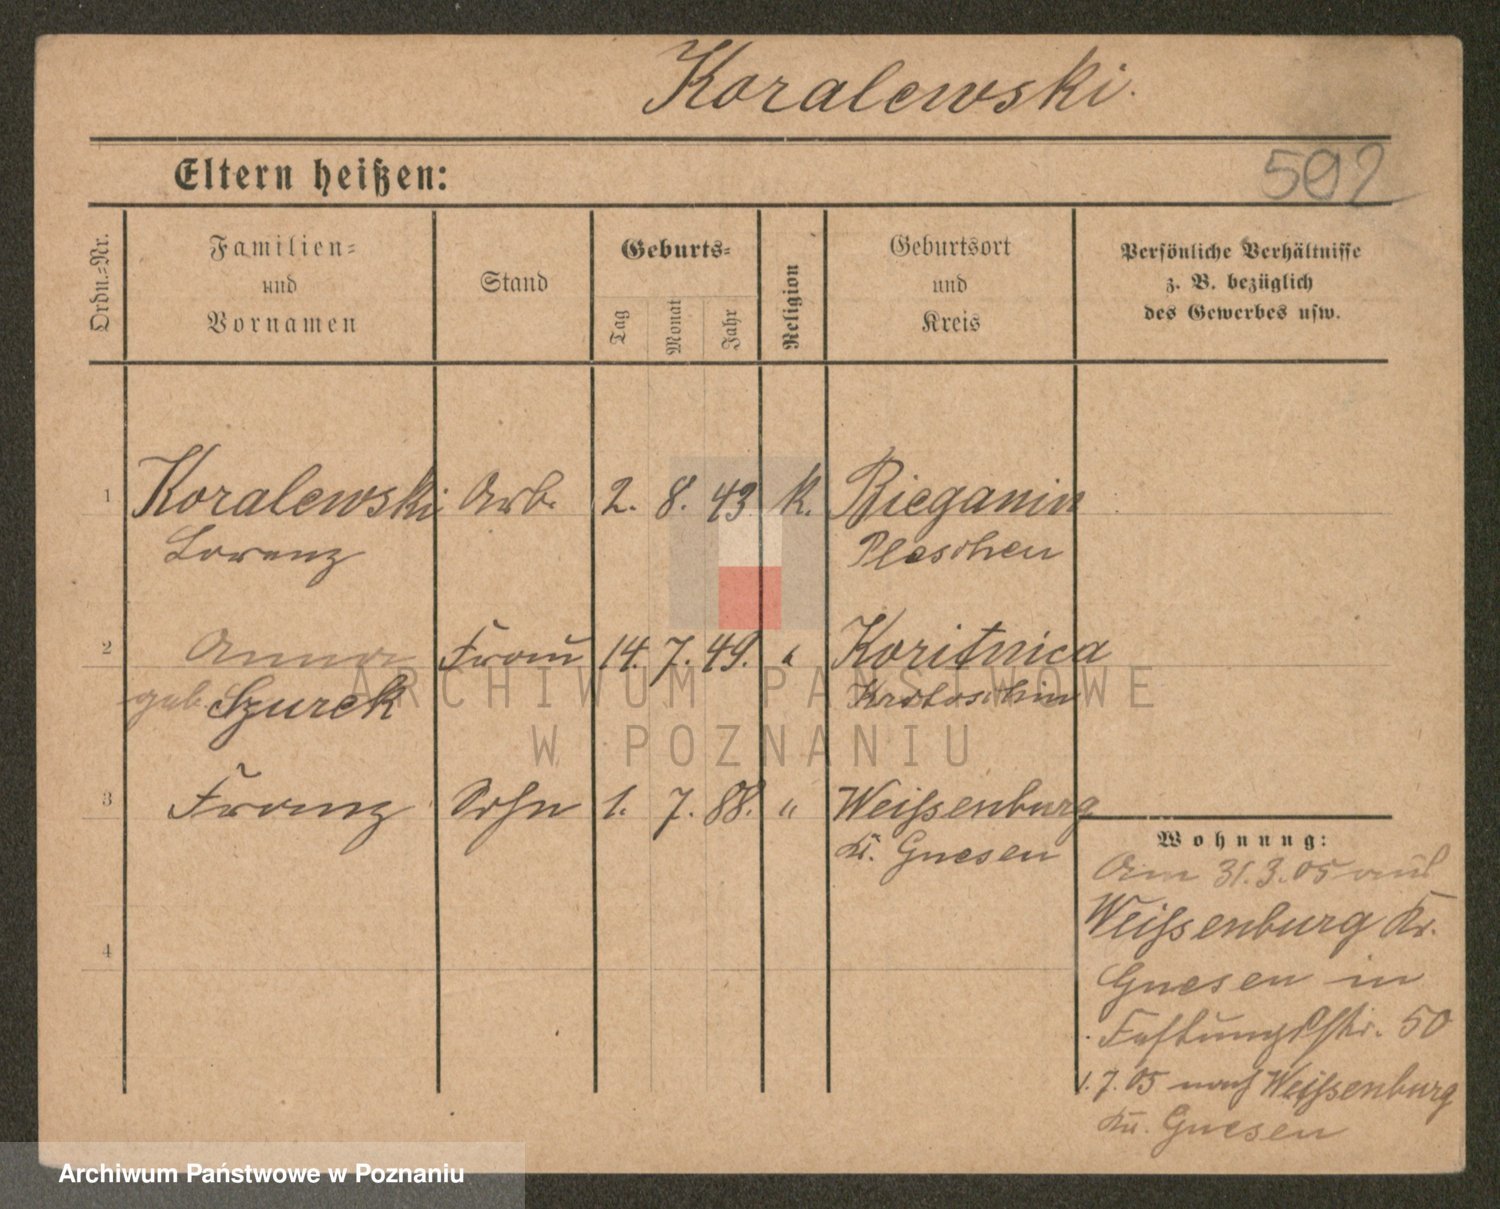 Koralewski.
592
Eltern heißen:
Ordn.-Nr.
Familien-
und
Vornamen
Stand
Geburts-
Tag
Monat
Jahr
Religion
Geburtsort
und
Kreis
Persönliche Verhältnisse
z. B. bezüglich
des Gewerbes usw.
1 Koralewski Arb. 2. 8. 43 k. Bieganin
Lorenz Pleschen
2 Anna Frau 14. 7. 49. " Koritnica
geb. Szurek Krotoschin
3 Franz Sohn 1. 7. 88. " Weißenburg
Kr. Gnesen
4
Wohnung:
Am 31.3.05 aus
Weißenburg Kr.
Gnesen in
Festungsstr. 50
1.7.05 nach Weißenburg
Kr. Gnesen
ARCHIWUM PAŃSTWOWE
W POZNANIU
Archiwum Państwowe w Poznaniu